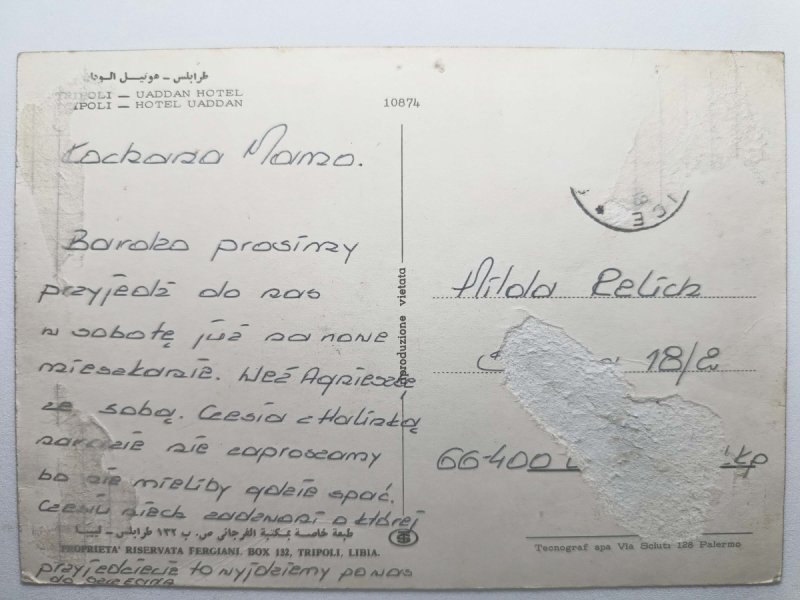 طرابلس - هوتيل الودان
TRIPOLI — UADDAN HOTEL
TRIPOLI — HOTEL UADDAN
10874
Kochana Mamo.
Bardzo prosimy
przyjedź do nas
w sobotę już na nowe
mieszkanie. Weź Agnieszkę
ze sobą. Czesia z Halinką
narazie nie zapraszamy
bo nie mieliby gdzie spać.
Czesiu niech zadzwoni o której
طبعة خاصة بمكتبة الفرجاني ص. ب ١٣٢ طرابلس - ليبيا
PROPRIETA' RISERVATA FERGIANI. BOX 132, TRIPOLI, LIBIA.
przyjedziecie to wyjdziemy po was
do
Riproduzione vietata
ICE
Hilda Relich
18/2
66-400
Tecnograf spa Via Scluti 128 Palermo